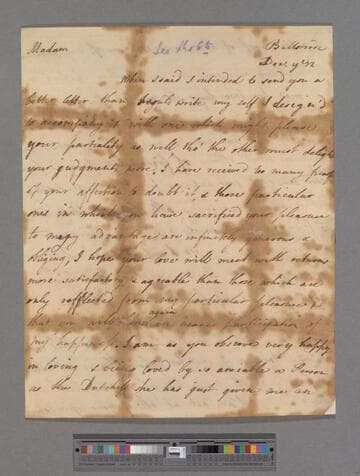 Madam
Bullstrode
Decr ye 12
When I said I intended to send you a
better letter than I could write my self I design'd
to accompany it with one which might please
your partiality as well tho' the other must delight
your judgment more, I have received too many proofs
of your affection to doubt it & those particular
ones in which you have sacrificed your pleasure
to my advantage are infinitely generous &
obliging, I hope your love will meet with returns
more satisfactory & agreable than those which are
only reflected from my particular pleasure &
that you will again participation of
my happiness, I am as you observe very happy
in loving & being loved by so amiable a Person
as the Dutchess she has just given me an